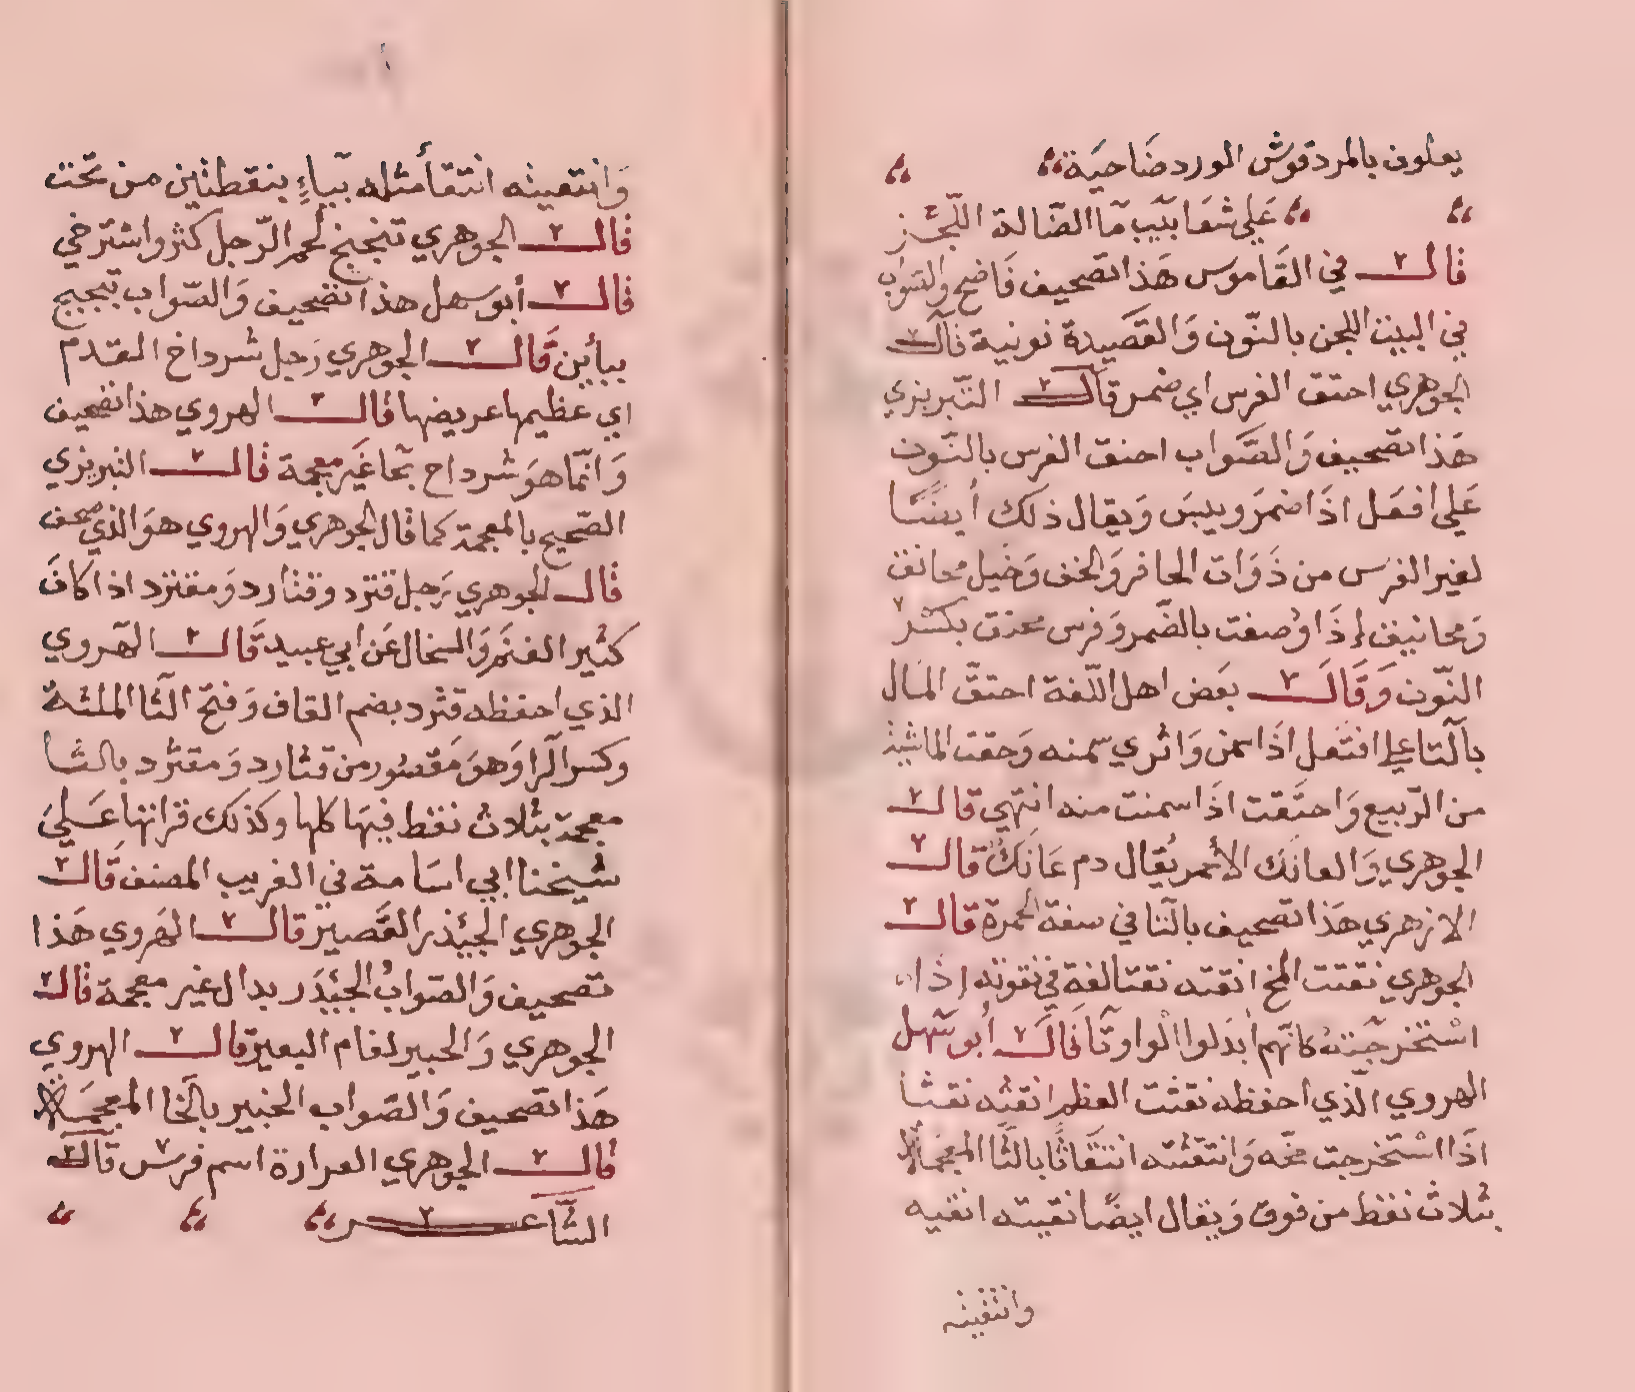 يعلون بالمردقوش الورد ضَاحيَة
عَلى شعَابيَب مآ الضّالة اللّجز
قال في القَاموس هَذا تصحيف فَاضح والصّواب
في البيت اللجن بالنّون وَالقصَيدة نونية قال
الجوهري احتق الفرس اي ضمر قال التّبريزي
هَذا تصحيف وَالصَّوَاب احنق الفرس بالنّون
عَلى افعَل اذَا ضمَر ويبسَ وَيقال ذلك أيضًا
لغير الفرس من ذَوَات الحافر وَالخف وَخيل محانق
وَمحانيق إذَا وُصفت بالضّمر وَفرس محنق بكسْر
النّون وَقَالَ بعَض اهل اللّغة احتقَّ المَال
بالّتا على افتعل اذَا سمن وَاثري سمنه وَحقت الماشية
من الرّبيع وَاحتَقت اذَا سمنت منه انتهي قال
الجوهري وَالعانَك الأحمر يُقال دم عَانَك قال
الازهري هَذا تصحيف بالّتا في صفة الحمرة قال
الجوهري نقتت المخ انقته نقتا لغة في نقوته إذا
اسْتخرجتَهُ كانّهم ابدَلوا الْواو تَا قَال أبو سَهل
الهروي الّذي احفظه نقثت العظم انقثه نقثا
اذَا اسْتخرجت مخّه وَانتقثته انتقَاثًا بالثّا المعجمة
بثلاث نقط من فوق وَيقال ايضًا نقيته انقيه
وانتقيته
وَانتقيته انتقأ مثله بيآءٍ بنقطتين من تحت
قال الجوهري تنجنج لحم الرّجل كثر واسْترخي
قال أبو سهل هذا تصحيف وَالصّواب تبجبج
ببائين قَال الجوهري رَجل شرداخ القدم
اي عظيمها عريضها قال الهروي هذا تصحيف
وَانّما هوَ شرداح بحا غيَر معجمة قال التبريزي
الصّحيح بالمعجمة كما قال الجوهري وَالهروي هوَ الذي صحف
قال الجوهري رَجل قترد وقتارد وَمقترد اذا كانَ
كثير الغنَم وَالسخال عَن ابي عبيد قَال الهروي
الذي احفظه قثرد بضم القاف وَفتح الثّا المثلثة
وكسر الرا وَهوَ مَقصُور من قثارد وَمقثرد بالثا
معجمة بثلاث نقط فيهَا كلها وكذلك قراتها عَلىَ
شيخنا ابي اسَامة في الغريب المصنف قَال
الجوهري الجيَذر القصَير قال الهروي هَذا
تصحيف وَالصّوابُ الجيْدَر بدال غير معجمة قال
الجوهري وَالحبير لغام البعير قال الهروي
هَذا تصحيف وَالصّواب الخبير بالخا المعجمَة
قال الجوهري العرارة اسم فرس قال
الشّاعر